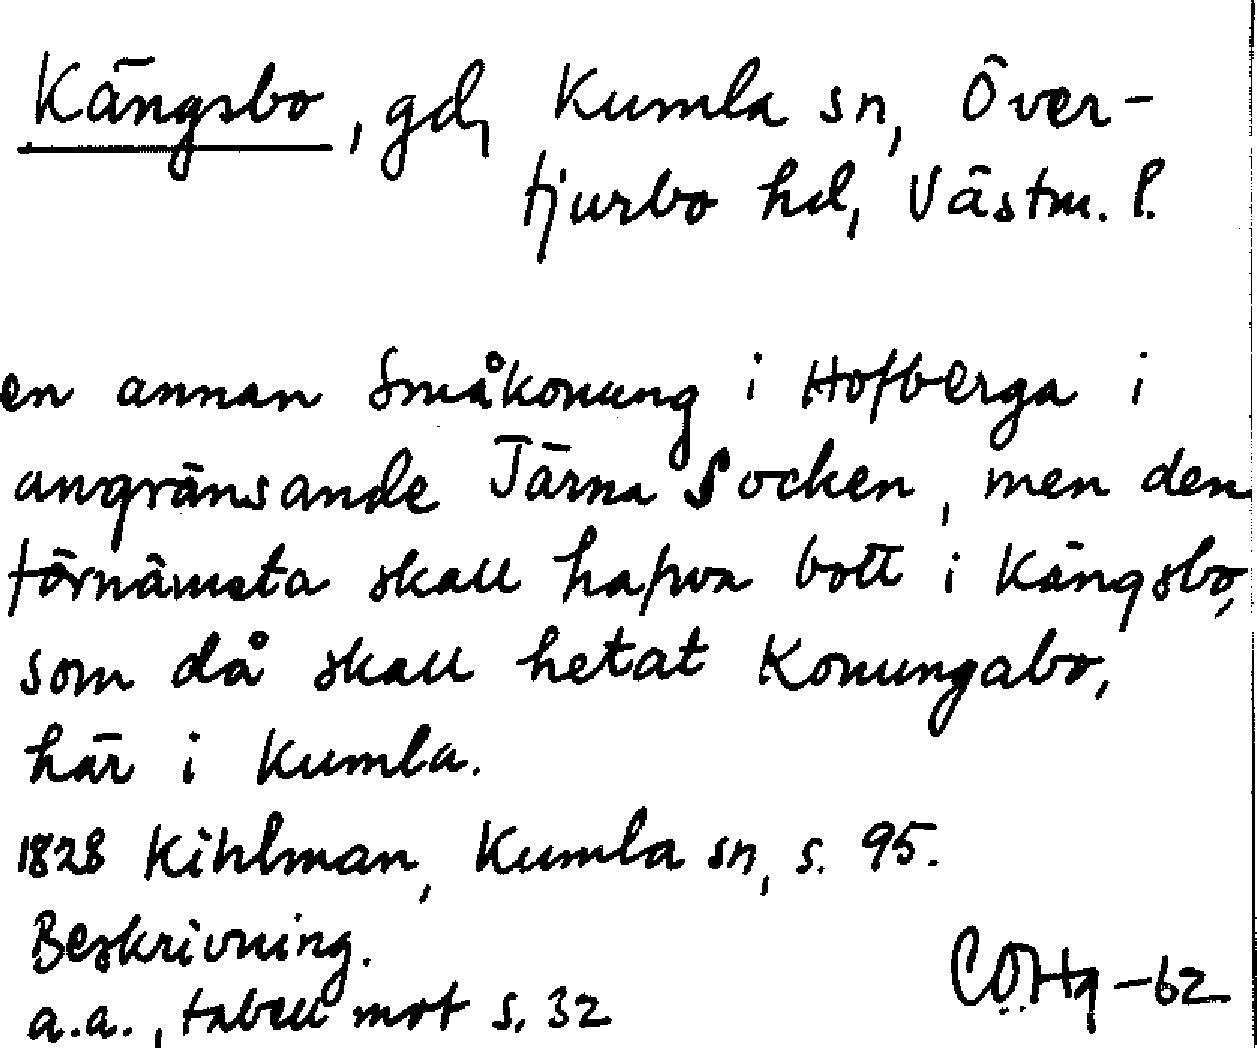 Kängsbo, gd, Kumla sn, Över-
tjurbo hd, Västm. l.
en annan Småkonung i Hofberga i
angränsande Tärna Socken, men den
förnämsta skall hafva bott i Kängsbo,
som då skall hetat Konungabo,
här i Kumla.
1828 Kihlman, Kumla sn, s. 95.
Beskrivning.
a.a., tabell mot s. 32
-62